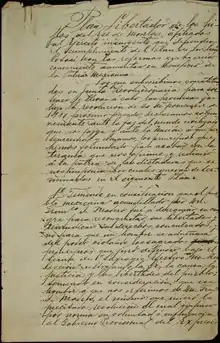 Plan Libertador de los hi-
jos del Estado de Morelos, afiliados
al Ejército Insurgente que defiende
el cumplimiento del Plan de San Luis
Potosí, con las reformas que ha creído
conveniente aumentar en beneficio de
la Patria Mexicana.
Los que subscribimos constituí-
dos en Junta Revolucionaria para sos-
tener y llevar a cabo las
que la revolución de 20 de Noviembre de
1910, próximo pasado declaramos solem-
nemente ante la faz del mundo civilizado
que nos juzga y ante la Nación a que
pertenecemos y amamos, los
que hemos formulado para acabar con la
tiranía que nos oprime y redimir
a la Patria de las dictaduras que se
nos imponen las cuales quedan de-
terminadas en el siguiente Plan:
1º Teniendo en consideración que el pue-
blo mexicano acaudillado por Don
Francisco I. Madero fué a derramar su
sangre para reconquistar sus libertades
y reivindicar sus derechos conculcados
y no para que un hombre se adueñara
del poder violando los sagrados
principios que juró defender bajo
el lema de "Sufragio Efectivo" "No Re-
elección" ultrajando la fé, la causa, la
justicia y las libertades del pueblo;
teniendo en consideración que ese
hombre a que nos referimos es Don Fran-
cisco I. Madero, el mismo que inició la
precitada revolución el cual impuso
por norma su voluntad e influencia
al Gobierno Provisional del Ex-Presi-